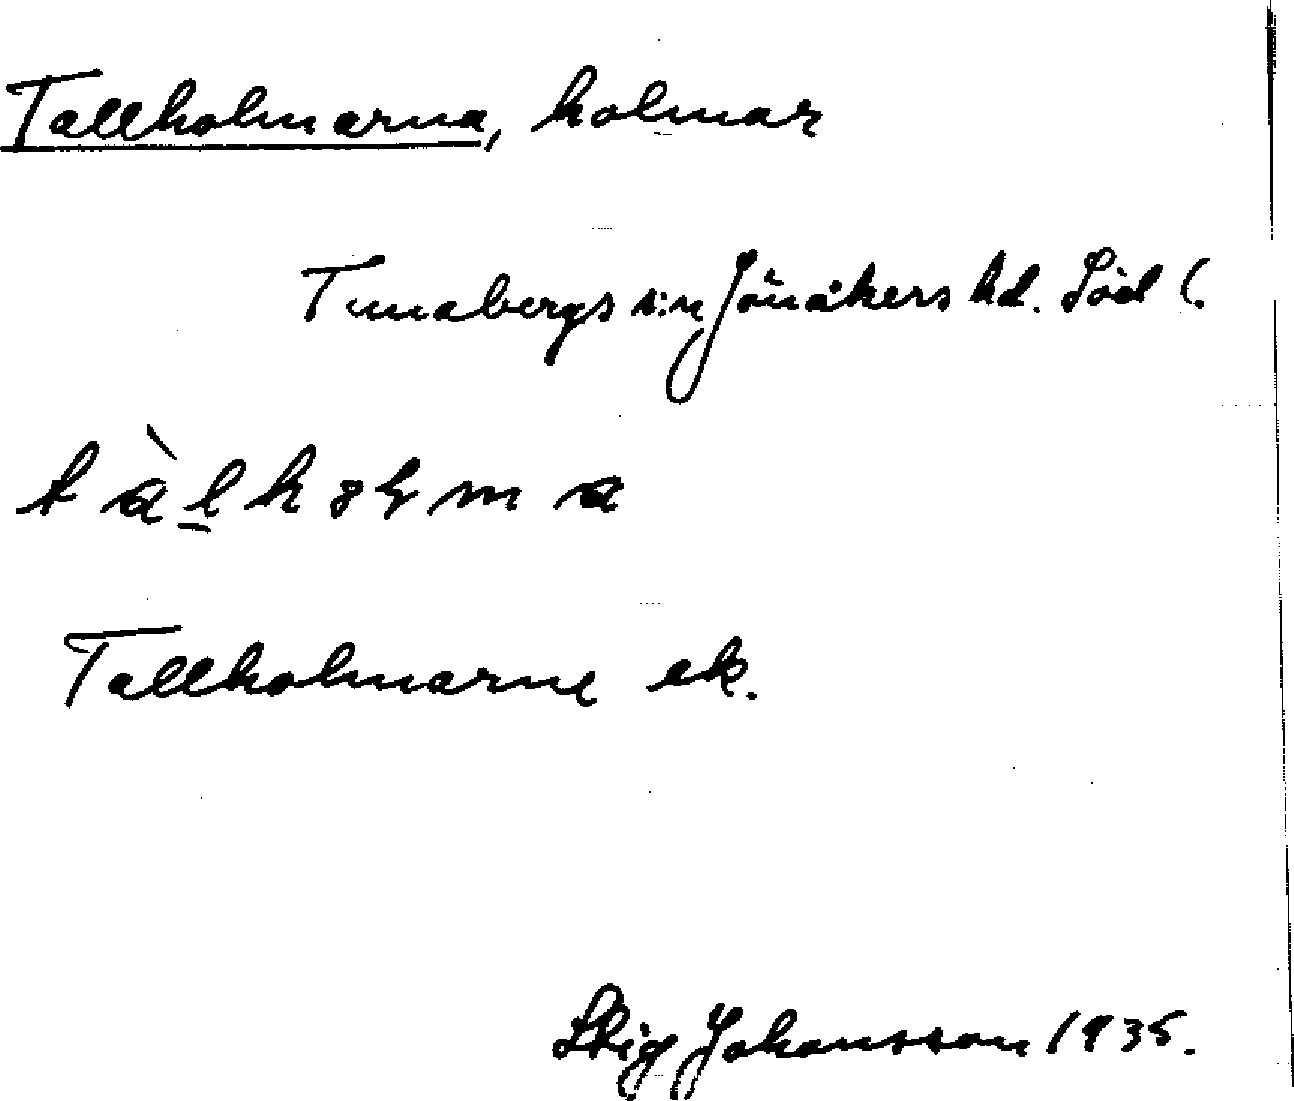 Tallholmarna, holmar
Tunabergs s:n Jönåkers hd. Söd l.
Tallholmarne ek.
Stig Johansson 1935.